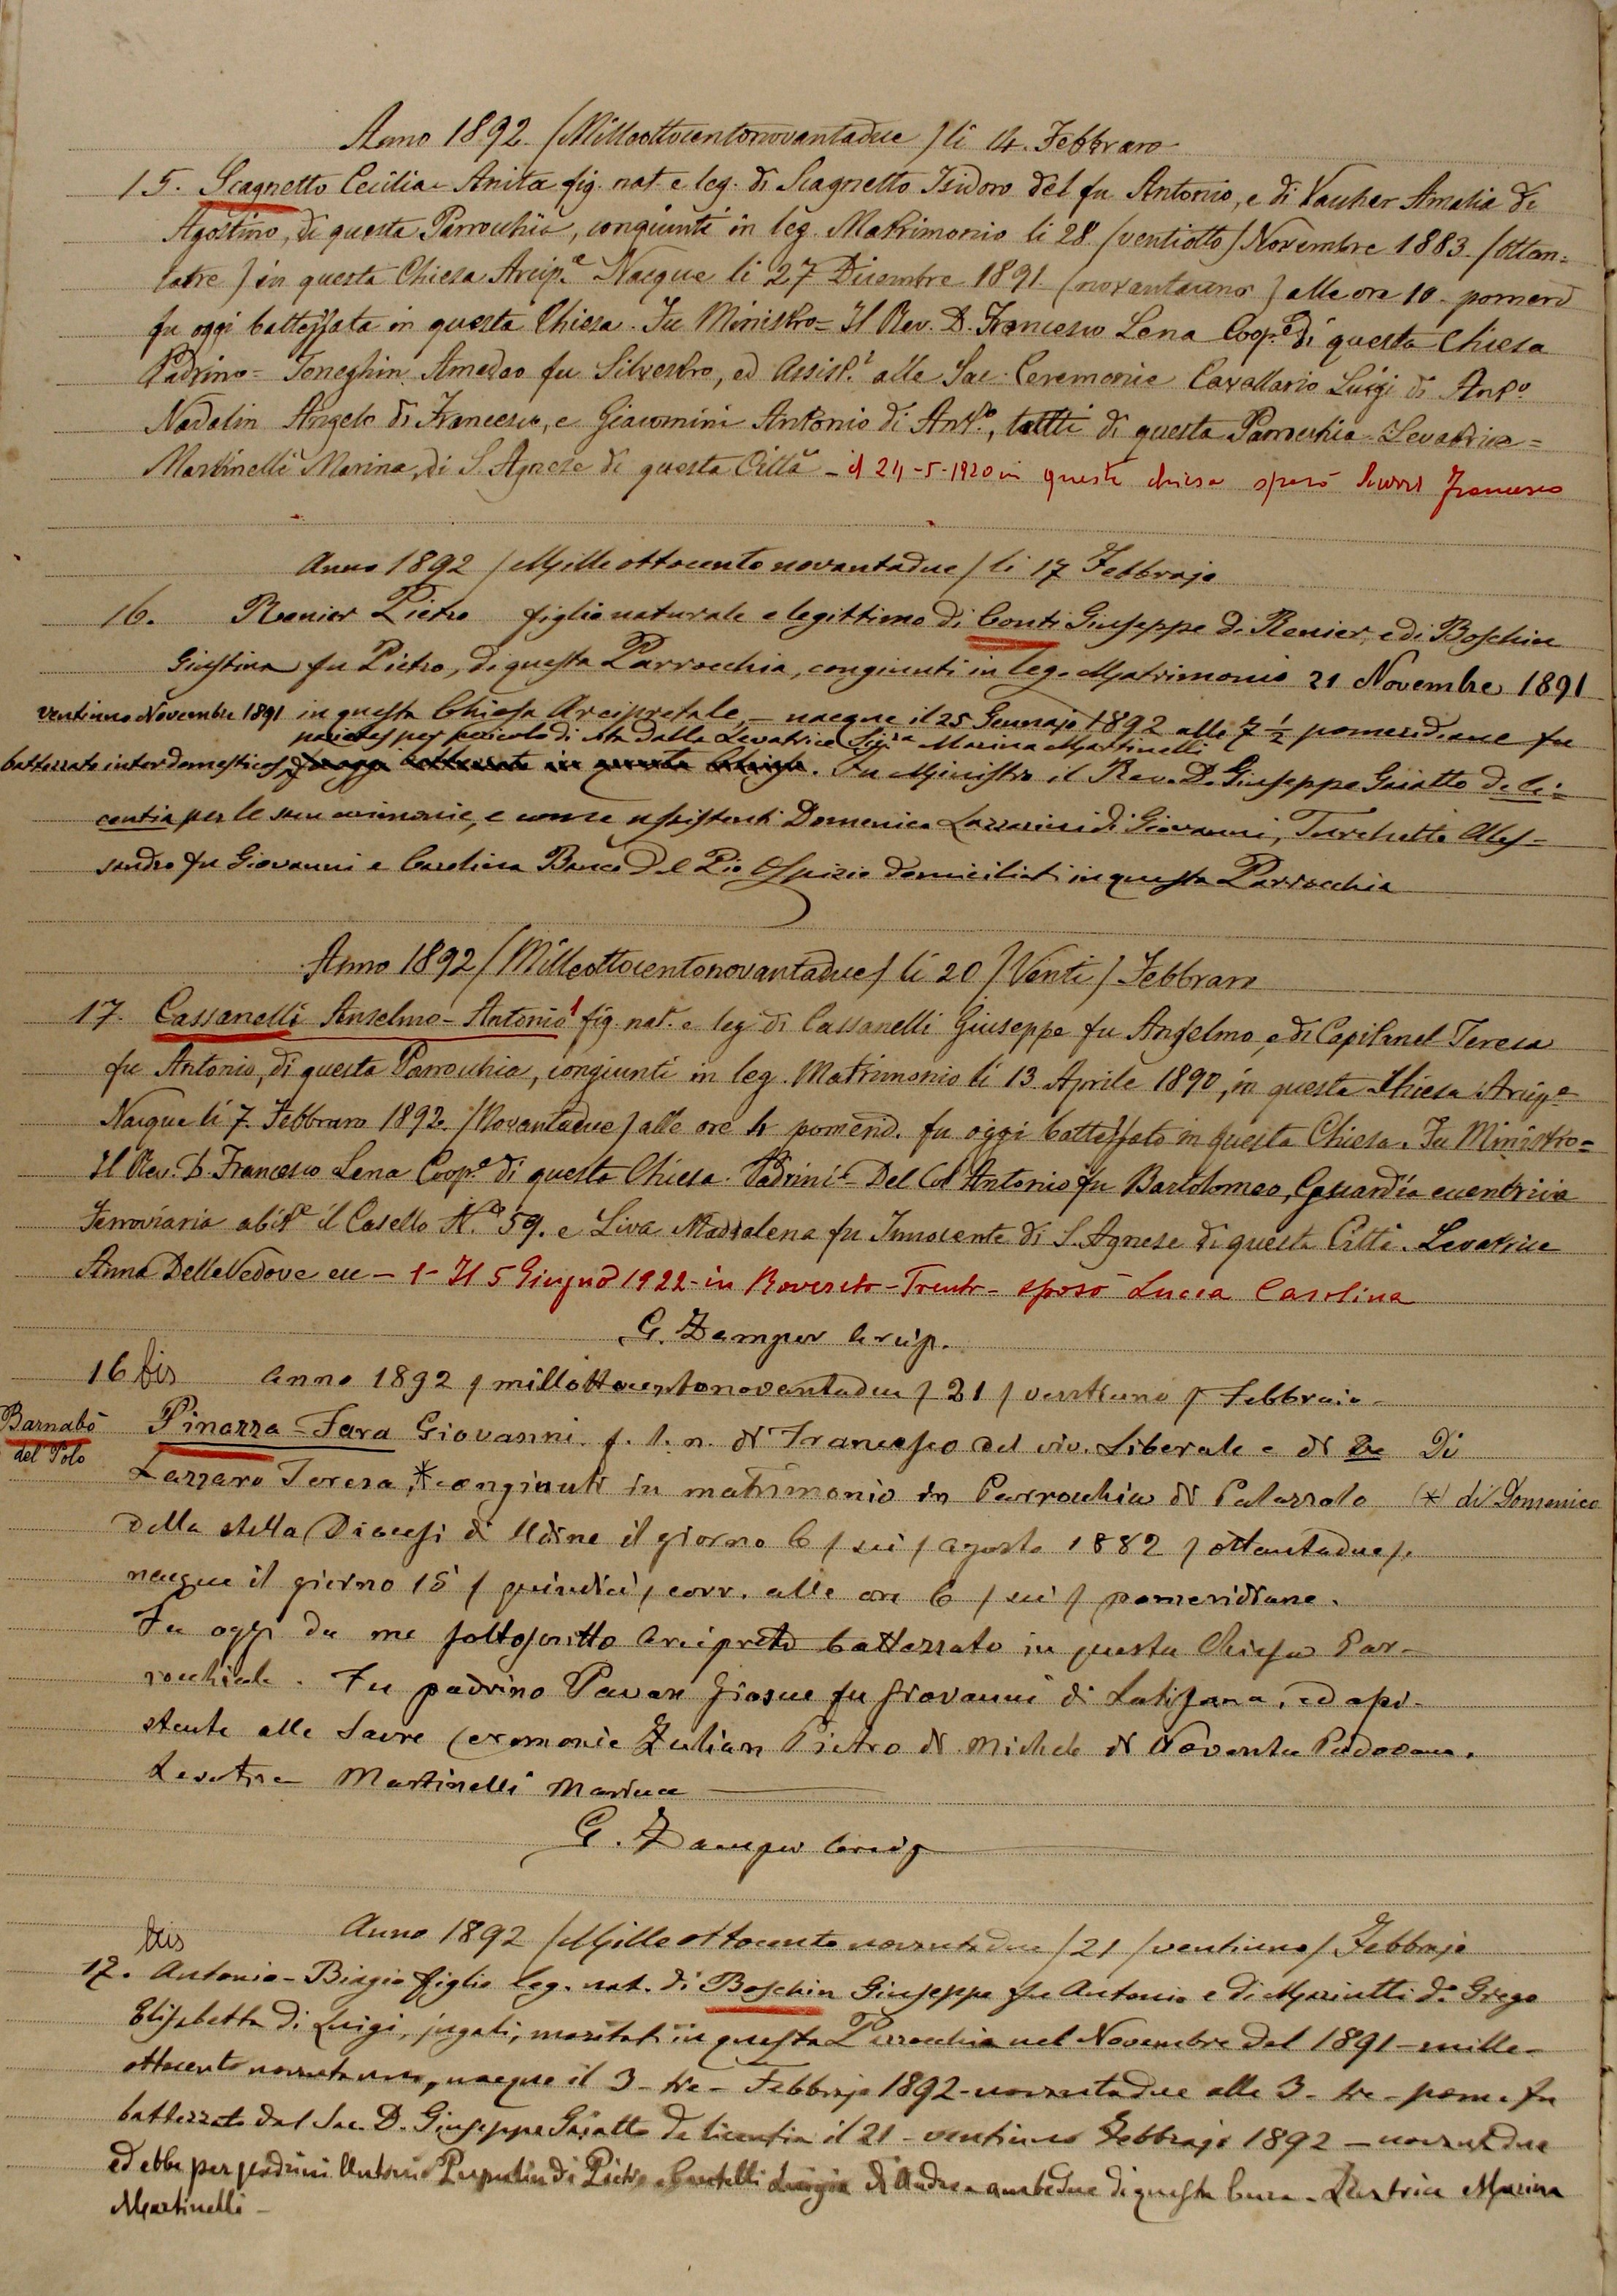 Anno 1892 (Milleottocentonovantadue) li 14. Febbraro
15. Scagnetto Cecilia-Anita fig. nat. e leg. di Scagnetto Isidoro del fu Antonio, e di Vauher Amalia di
Agostino, di questa Parrochia, congiunti in leg. Matrimonio li 28 (ventiotto) Novembre 1883 (ottan=
tatre) in questa Chiesa Arcip.e Nacque li 27 Dicembre 1891 (novantauno) alle ore 10 pomerd
fu oggi battezzata in questa Chiesa. Fu Ministro= Il Rev. D. Francesco Lena Coop.e di questa Chiesa
Padrino= Toneghin Amedeo fu Silvestro, ed Assist.i alle Sac. Ceremonie Cavallario Luigi di Ant.o
Nadalin Angelo di Francesco, e Giacomini Antonio di Ant.o, tutti di questa Parrochia. Levatrice=
Martinelli Marina, di S. Agnese di questa Città - il 24-5-1920 in questa chiesa sposò Francesco
Anno 1892 (Mille ottocento novantadue) li 17 Febbrajo
16. Renier Pietro figlio naturale e legittimo di Conti Giuseppe di Renier, e di Boschin
Giustina fu Pietro, di questa Parrocchia, congiunti in leg. Matrimonio 21 Novembre 1891
ventiuno Novembre 1891 in questa Chiesa Arcipretale, - nacque il 25 Gennajo 1892 alle 7 1/2 pomeridiane fu
per pericolo di dalla Levatrice Sig.ra Marina Martinelli
battezzato inter domesticos fu oggi battezzato in questa Chiesa. Fu Ministro il Rev. D. Giuseppe Gaiatto de li=
centia per le sacre cerimonie, e come assistenti Domenico Lazzarini di Giovanni, Turchetto Ales=
sandro fu Giovanni e Carolina Banco del Pio Ospizio domiciliati in questa Parrocchia
Anno 1892 (Milleottocentonovantadue) li 20 (Venti) Febbraro
17. Cassanelli Anselmo-Antonio 1 fig. nat. e leg. di Cassanelli Giuseppe fu Anselmo, e di Capitanel Teresa
fu Antonio, di questa Parrochia, congiunti in leg. Matrimonio li 13 Aprile 1890, in questa Chiesa Arcip.e
Nacque li 7. Febbraro 1892. (Novantadue) alle ore 4 pomerid. fu oggi battezzato in questa Chiesa. Fu Ministro=
Il Rev. D. Francesco Lena Coop.e di questa Chiesa. Padrini= Del Col Antonio fu Bartolomeo, Guardia eccentricia
Ferroviaria abit.e il Casello N.o 59. e Liva Maddalena fu Innocente di S. Agnese di questa Città. Levatrice
Anna Delle Vedove ecc - 1 - Il 5 Giugno 1922 - in Rovereto - Trento - sposò Lucca Carolina
G. Zamper Arcip.
16 bis Anno 1892 (millottocentonovantadue) 21 (ventiuno) Febbraio
Barnabò del Polo
Pinazza=Fava Giovanni f. l. n. di Francesco del viv. Liberale e di De Di
Lazzaro Teresa, * congiunti in matrimonio in Parrochia di Palazzolo (*) di Domenico
della stella Diocesi di Udine il giorno 6 (sei) Agosto 1882 (ottantadue),
nacque il giorno 15 (quindici) corr. alle ore 6 (sei) pomeridiane.
Fu oggi da me sottoscritto Arciprete battezzato in questa Chiesa Par-
rochiale. Fu padrino Pavan Giosue fu Giovanni di Latisana, ed assi-
stente alle Sacre Ceremonie Zulian Pietro di Michele di Noventa Padovana.
Levatrice Martinelli Marina
G. Zamper Arcip
Anno 1892 (Mille ottocento novantadue) 21 (ventiuno) Febbrajo
17. bis Antonio-Biagio figlio leg. nat. di Boschin Giuseppe fu Antonio e di Mariutti d.o Grego
Elisabetta di Luigi, jugali, maritati in questa Parrocchia nel Novembre del 1891 - mille-
ottocento novantauno, nacque il 3 - tre - Febbrajo 1892 - novantadue alle 3 - tre - pom. fu
battezzato dal Sac. D. Giuseppe Gaiatto de licentia il 21 - ventiuno Febbrajo 1892 - novantadue
ed ebbe per padrini Antonio Perpetin di Pietro e Luigia di Andrea ambedue di questa Cura. Levatrice Marina
Martinelli -